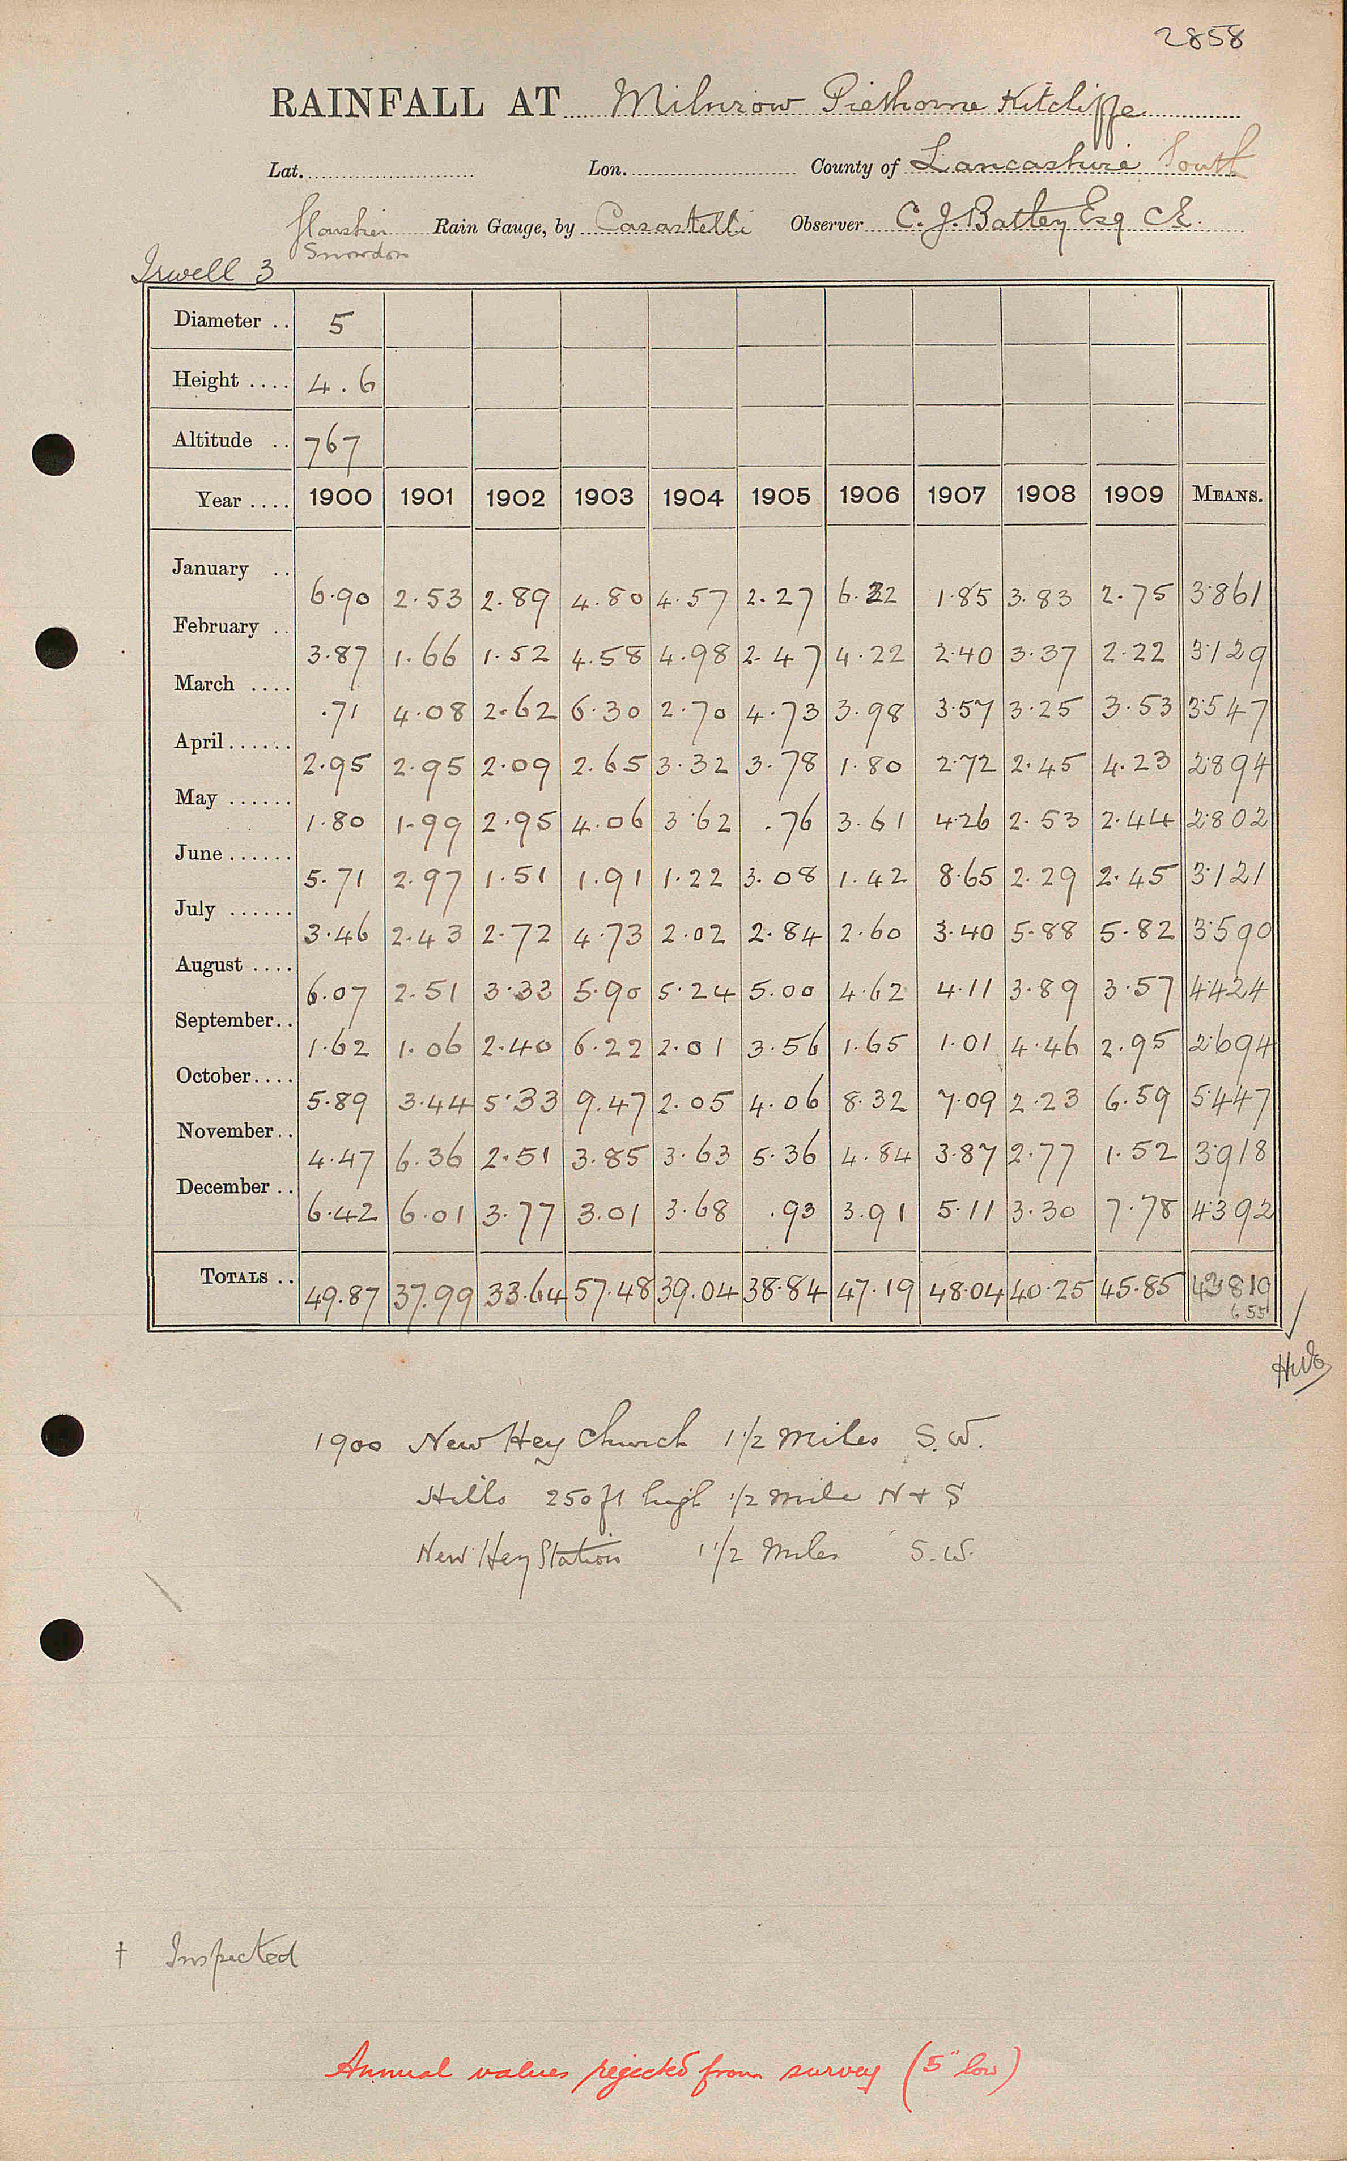 2858
RAINFALL AT Milnrow Piethorne Kitcliffe
Lat. Lon. County of Lancashire South
Rain Gauge, by Casartelli Observer C. J. Batley Esq CE.
Snowdon
Irwell 3
Diameter .. 5
Height .... 4.6
Altitude .. 767
Year .... 1900 1901 1902 1903 1904 1905 1906 1907 1908 1909 MEANS.
January .. 6.90 2.53 2.89 4.80 4.57 2.27 6.22 1.85 3.83 2.75 3.861
February .. 3.87 1.66 1.52 4.58 4.98 2.47 4.22 2.40 3.37 2.22 3.129
March .... .71 4.08 2.62 6.30 2.70 4.73 3.98 3.57 3.25 3.53 3.547
April...... 2.95 2.95 2.09 2.65 3.32 3.78 1.80 2.72 2.45 4.23 2.894
May ...... 1.80 1.99 2.95 4.06 3.62 .76 3.61 4.26 2.53 2.44 2.802
June...... 5.71 2.97 1.51 1.91 1.22 3.08 1.42 8.65 2.29 2.45 3.121
July ...... 3.46 2.43 2.72 4.73 2.02 2.84 2.60 3.40 5.88 5.82 3.590
August .... 6.07 2.51 3.33 5.90 5.24 5.00 4.62 4.11 3.89 3.57 4.424
September.. 1.62 1.06 2.40 6.22 2.01 3.56 1.65 1.01 4.46 2.95 2.694
October.... 5.89 3.44 5.33 9.47 2.05 4.06 8.32 7.09 2.23 6.59 5.447
November.. 4.47 6.36 2.51 3.85 3.63 5.36 4.84 3.87 2.77 1.52 3.918
December .. 6.42 6.01 3.77 3.01 3.68 .93 3.91 5.11 3.30 7.78 4.392
TOTALS .. 49.87 37.99 33.64 57.48 39.04 38.84 47.19 48.04 40.25 45.85 43810
1900 New Hey Church 1 1/2 miles S.W.
Hills 250 ft high 1/2 mile N + S
New Hey Station 1 1/2 Miles S.W.
† Inspected
Annual values rejected from survey (5" low)